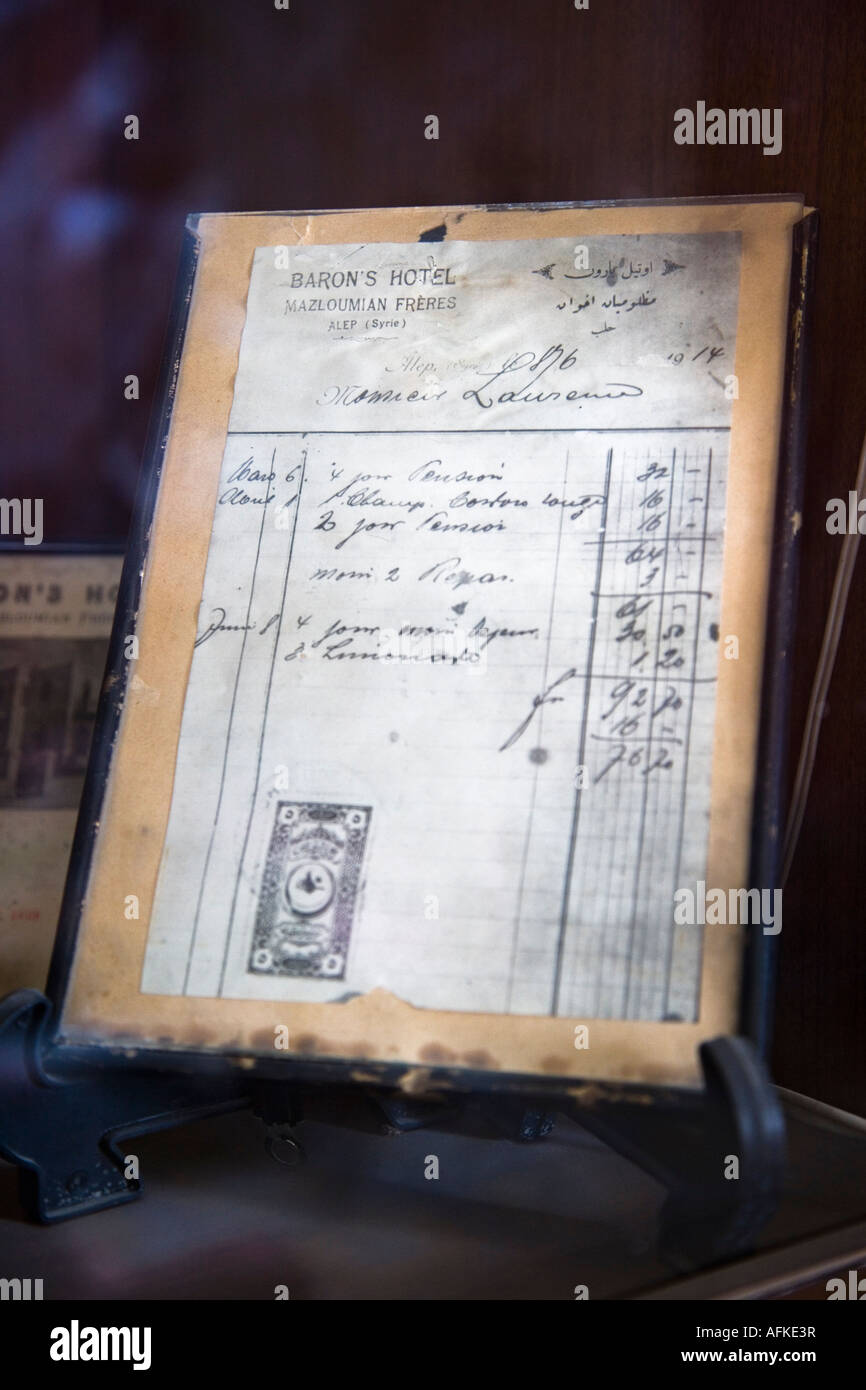 BARON'S HOTEL
MAZLOUMIAN FRÈRES
ALEP (Syrie)
اوتيل بارون
مظلوميان اخوان
حلب
Alep, 1914
Monsieur Laurence
Mars 6 4 jour Pension 32 -
Avril 1 1 Champ. Cordon rouge 16 -
2 jour Pension 16 -
64 -
moin 2 Repas. 3 -
61 -
Juin 8 4 jour moin 30.50
3 Limonade 1.20
fr 92 70
16 -
76 70
ON'S HO
alamy
Image ID: AFKE3R
www.alamy.com